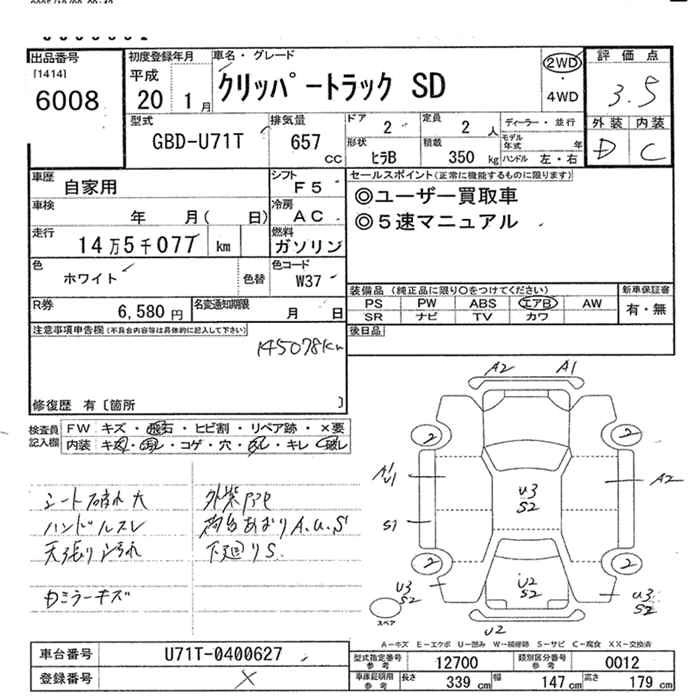 出品番号
[1414]
6008
初度登録年月
平成
20 1月
車名・グレード
クリッパートラック SD
2WD
・
4WD
評価点
3.5
外装 内装
D C
型式
GBD-U71T
排気量
657
cc
ドア 2
定員 2 人
ディーラー・並行
モデル年式 年
形状 ヒラB
積載 350 kg
ハンドル 左・右
車歴 自家用
シフト F5
セールスポイント(正常に機能するものに限ります)
◎ユーザー買取車
◎5速マニュアル
車検 年 月( 日)
冷房 AC
走行 14万5千077 km
燃料 ガソリン
色 ホワイト 色替
色コード W37
装備品(純正品に限り○をつけてください)
新車保証書
PS PW ABS エアB AW
有・無
SR ナビ TV カワ
R券 6,580円
名変通知期限 月 日
後日品
注意事項申告欄(不具合内容等は具体的に記入して下さい)
145078km
修復歴 有〔箇所 〕
検査員記入欄
FW キズ・飛石・ヒビ割・リペア跡・×要
内装 キズ・汚れ・コゲ・穴・スレ・キレ・破レ
シート破れ大
ハンドルスレ
天張り汚れ
カミラーキズ
荷台あおりA.U.S
下廻りS.
A2 A1
2 2
A1
U1
U3
S2
A2
S1
2 2
U3
S2
U2
S2
U3
S2
スペア
U2
A-キズ E-エクボ U-凹み W-補修跡 S-サビ C-腐食 XX-交換済
車台番号 U71T-0400627
登録番号 ×
型式指定番号 参考 12700
類別区分番号 参考 0012
車庫証明用 参考 長さ 339 cm 幅 147 cm 高さ 179 cm